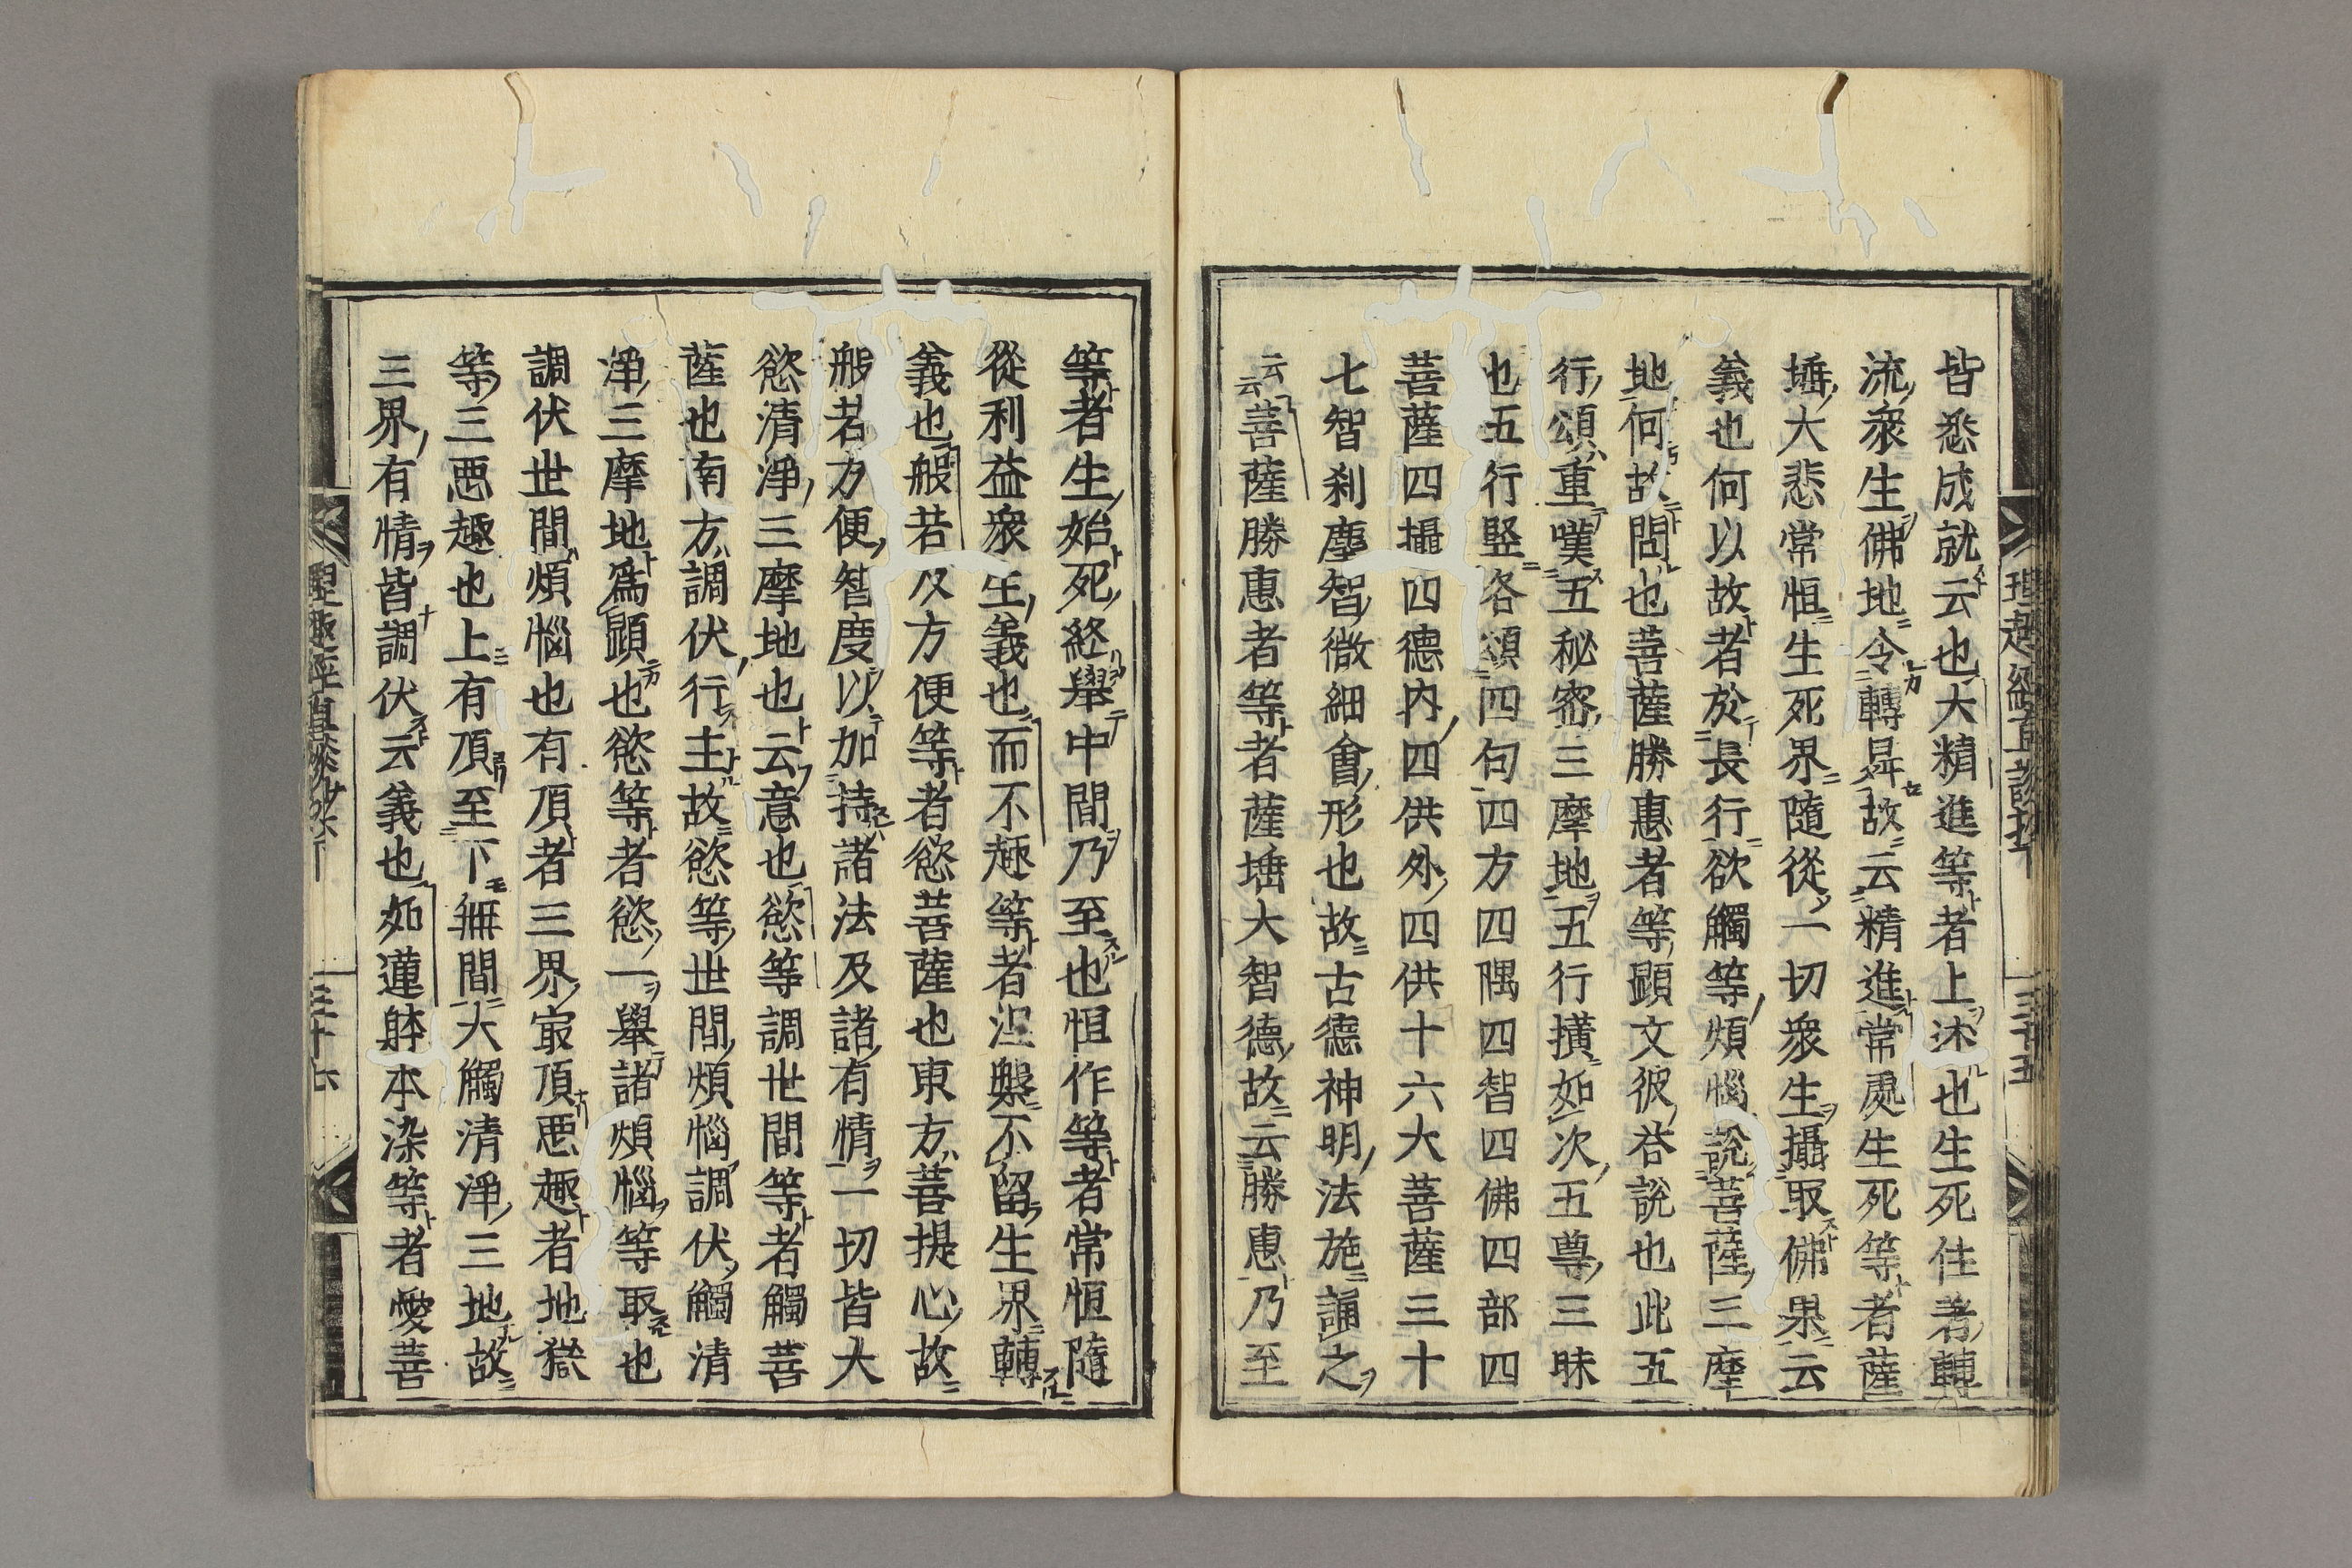 皆悉成就云也大精進等者上述也生死住者轉
流衆生佛地令轉昇故云精進常處生死等者薩
埵大悲常恒生死界隨從一切衆生攝取佛果云
義也何以故者於長行欲觸等煩惱說菩薩三摩
地何故問也菩薩勝惠者等顯文彼荅說也此五
行頌重嘆五秘密三摩地五行擴如次五尊三昧
也五行竪各頌四句四方四隅四智四佛四部四
菩薩四攝四德内四供外四供十六大菩薩三十
七智刹塵智微細會形也故古德神明法施誦之
云云菩薩勝惠者等者薩埵大智德故云勝惠乃至
理趣經直談抄
三十五
等者生始死終舉中間乃至也恒作等者常恒隨
從利益衆生義也而不趣等者涅槃不留生界轉
義也般若及方便等者慾菩薩也東方菩提心故
般若方便智度以加持諸法及諸有情一切皆大
慾清淨三摩地也云意也慾等調世間等者觸菩
薩也南方調伏行主故慾等世間煩惱調伏觸清
淨三摩地爲顕也慾等者慾一舉諸煩惱等取也
調伏世間煩惱也有頂者三界㝡頂惡趣者地獄
等三惡趣也上有頂至下無間大觸清淨三地故
三界有情皆調伏云義也如蓮躰本染等者愛菩
三十六